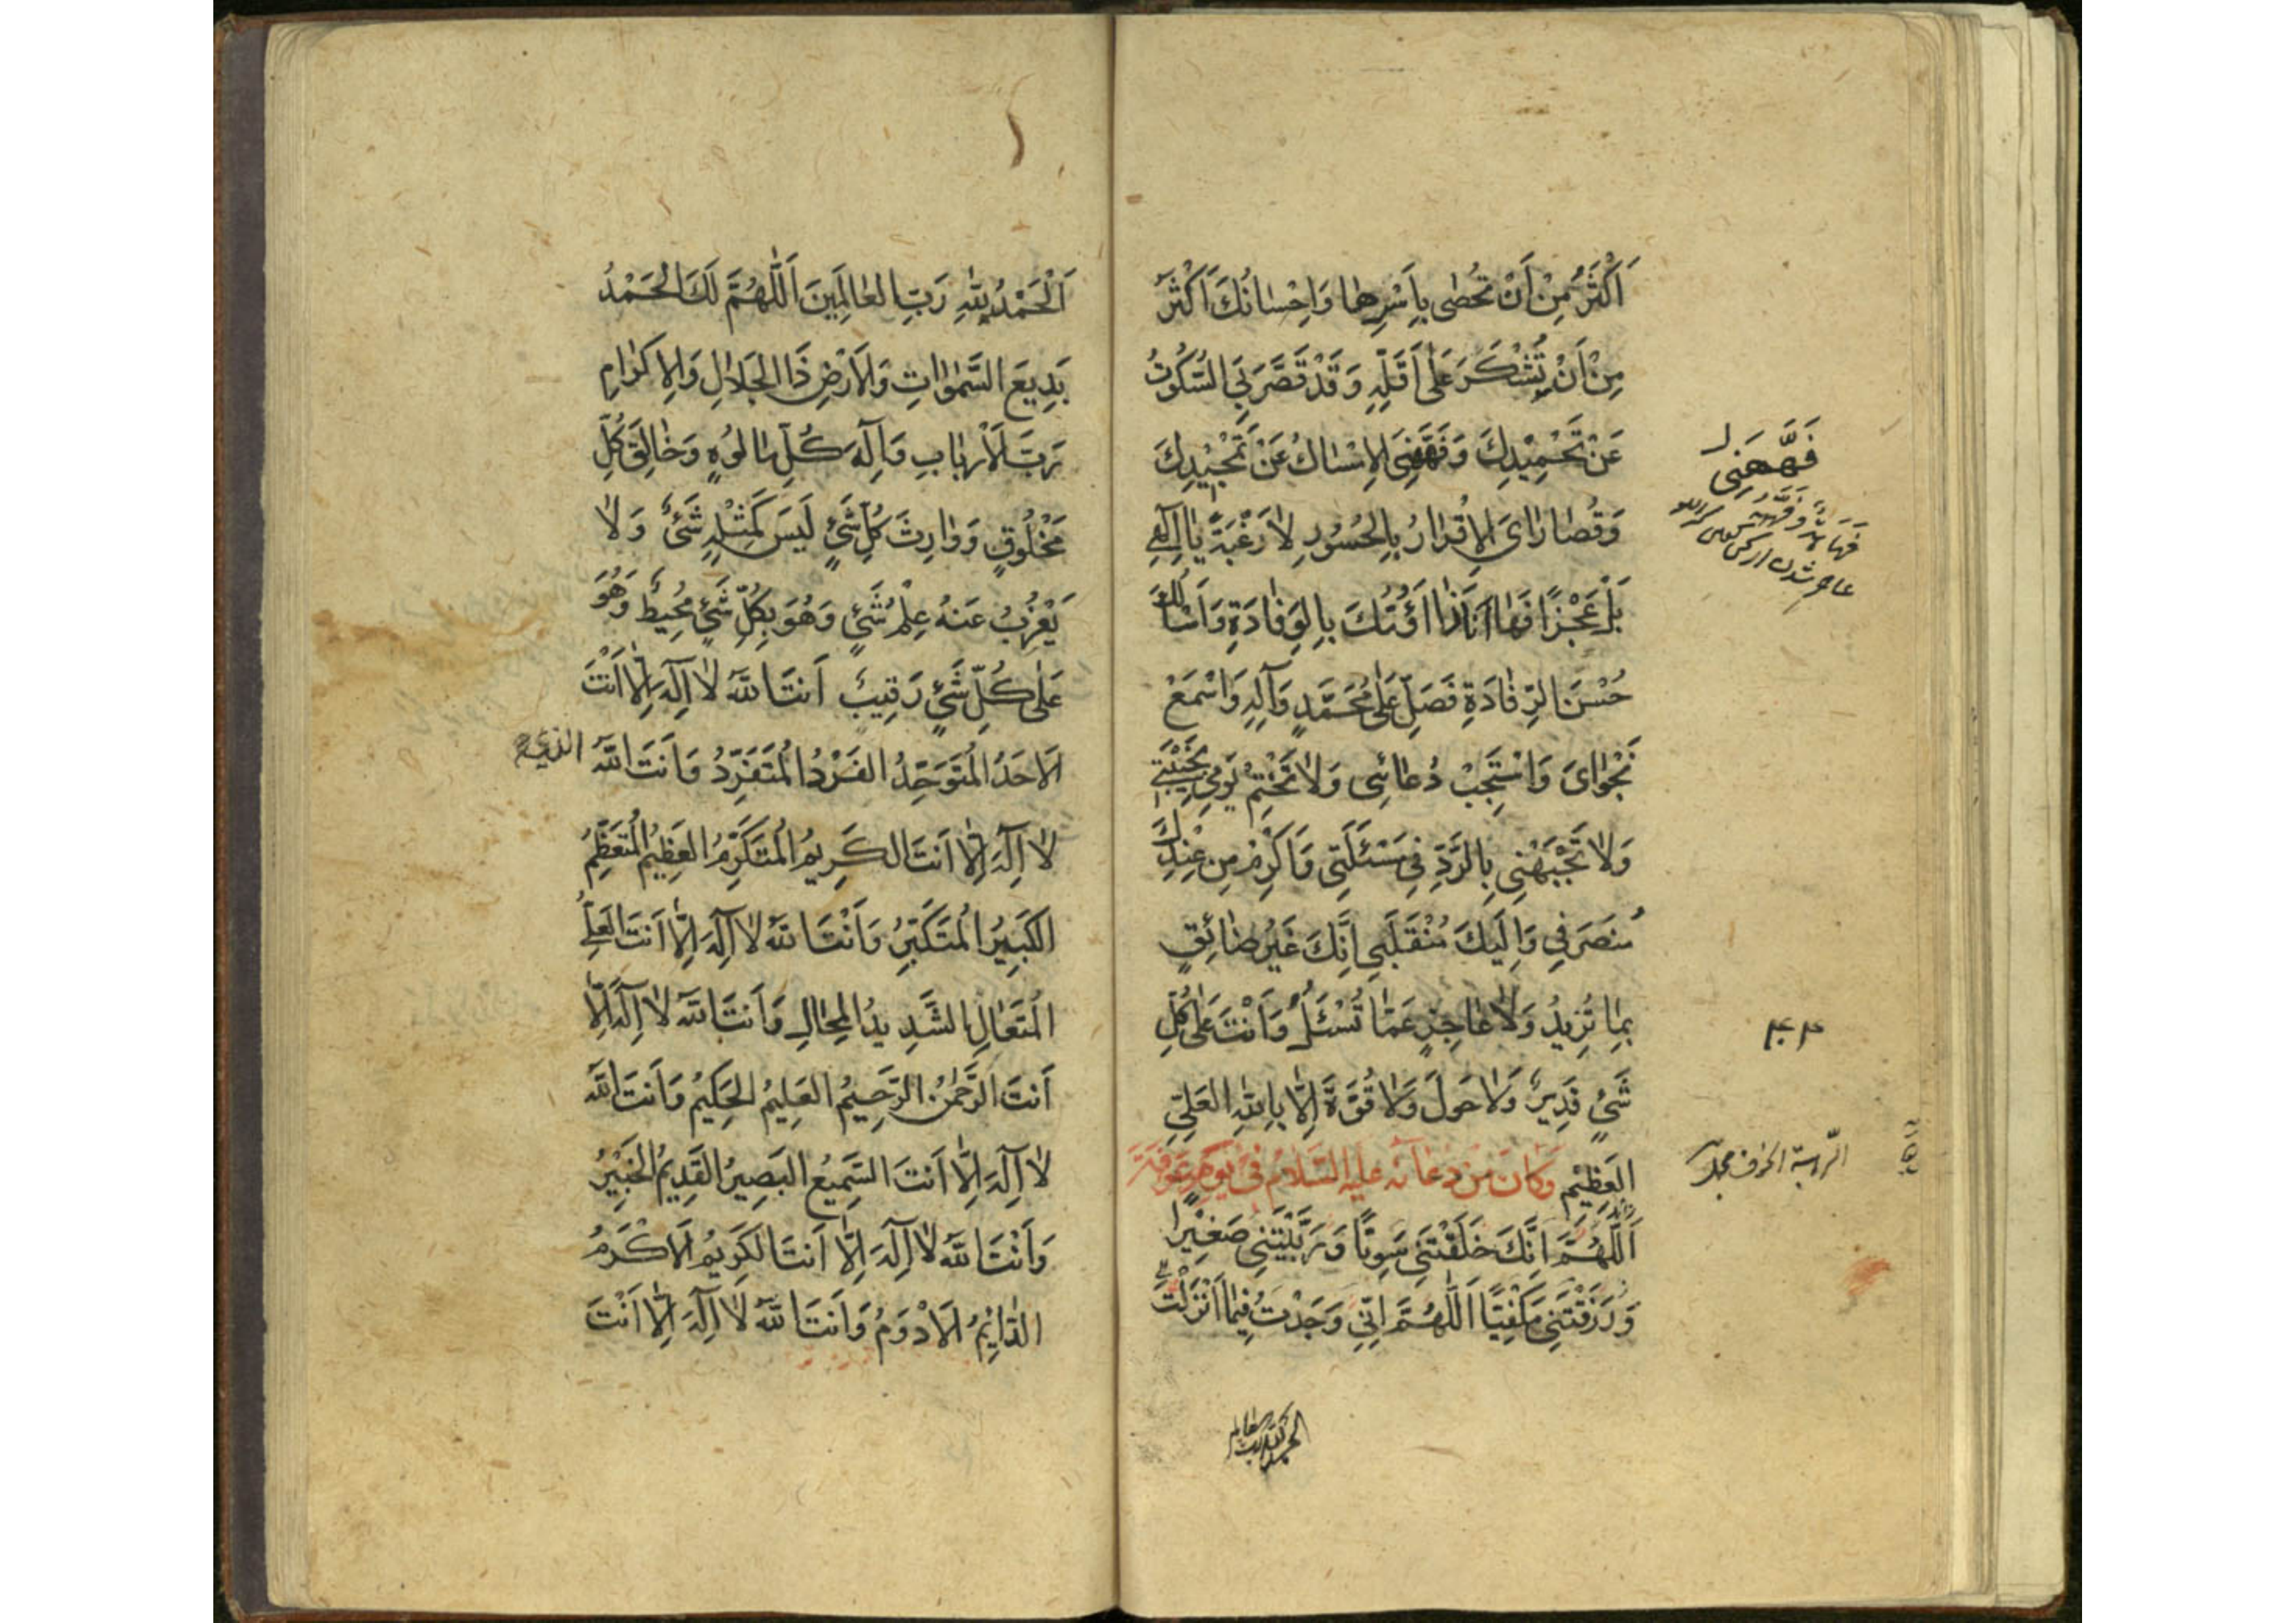 اَكْثَرُ مِنْ اَنْ تُحْصٰى بِاَسْرِهٰا وَاِحْسٰانُكَ اَكْثَرُ
مِنْ اَنْ تُشْكَرَ عَلٰى اَقَلِّهِ وَقَدْ قَصَّرَ بِيَ السُّكُوتُ
عَنْ تَحْمِيْدِكَ وَفَهَّهَنِيَ الاِمْسٰاكُ عَنْ تَمْجِيْدِكَ
وَقُصٰارٰاىَ الاِقْرٰارُ بِالْحُسُورِ لٰا رَغْبَةً يٰا اِلٰهِي
بَلْ عَجْزًا فَهٰا اَنَا ذٰا اَؤُمُّكَ بِالْوِفٰادَةِ وَاَسْاَلُكَ
حُسْنَ الرِّفٰادَةِ فَصَلِّ عَلٰى مُحَمَّدٍ وَآلِهِ وَاسْمَعْ
نَجْوٰاىَ وَاسْتَجِبْ دُعٰائِى وَلٰا تَخْتِمْ يَوْمِي بِخَيْبَتِي
وَلٰا تَجْبَهْنِى بِالرَّدِّ فِى مَسْئَلَتِى وَاَكْرِمْ مِنْ عِنْدِكَ
مُنْصَرَفِي وَاِلَيْكَ مُنْقَلَبِي اِنَّكَ غَيْرُ ضٰائِقٍ
بِمٰا تُرِيدُ وَلٰا عٰاجِزٍ عَمّٰا تُسْئَلُ وَاَنْتَ عَلٰى كُلِّ
شَيْءٍ قَدِيرٌ وَلٰا حَوْلَ وَلٰا قُوَّةَ اِلّٰا بِاللهِ العَلِيِّ
العَظِيْمِ وَكَانَ مِنْ دُعَآئِهِ عَلَيْهِ السَّلَامُ فِى يَوْمِ عَرَفَةَ
اَللّٰهُمَّ اِنَّكَ خَلَقْتَنِى سَوِيًّا وَرَبَّيْتَنِى صَغِيْرًا
وَرَزَقْتَنِى مَكْفِيًّا اَللّٰهُمَّ اِنِّي وَجَدْتُ فِيمٰا اَنْزَلْتَ
فَهَّهَنِى
اَلْحَمْدُ لِلّٰهِ رَبِّ العٰالَمِينَ اَللّٰهُمَّ لَكَ الْحَمْدُ
بَدِيعَ السَّمٰوٰاتِ وَالاَرْضِ ذَا الجَلٰالِ وَالاِكْرٰامِ
رَبَّ الاَرْبٰابِ وَاِلٰهَ كُلِّ مَالُوهٍ وَخٰالِقَ كُلِّ
مَخْلُوقٍ وَوٰارِثَ كُلِّ شَيْءٍ لَيْسَ كَمِثْلِهِ شَيْءٌ وَلٰا
يَعْزُبُ عَنْهُ عِلْمُ شَيْءٍ وَهُوَ بِكُلِّ شَيْءٍ مُحِيطٌ وَهُوَ
عَلٰى كُلِّ شَيْءٍ رَقِيبٌ اَنْتَ اللهُ لٰا اِلٰهَ اِلّٰا اَنْتَ
الاَحَدُ المُتَوَحِّدُ الفَرْدُ المُتَفَرِّدُ وَاَنْتَ اللهُ الذي
لٰا اِلٰهَ اِلّٰا اَنْتَ الكَرِيمُ المُتَكَرِّمُ العَظِيمُ المُتَعَظِّمُ
الكَبِيرُ المُتَكَبِّرُ وَاَنْتَ اللهُ لٰا اِلٰهَ اِلّٰا اَنْتَ العَلِيُّ
المُتَعٰالِ الشَّدِيدُ المِحٰالِ وَاَنْتَ اللهُ لٰا اِلٰهَ اِلّٰا
اَنْتَ الرَّحْمٰنُ الرَّحِيمُ العَلِيمُ الحَكِيمُ وَاَنْتَ اللهُ
لٰا اِلٰهَ اِلّٰا اَنْتَ السَّمِيعُ البَصِيرُ القَدِيمُ الخَبِيْرُ
وَاَنْتَ اللهُ لٰا اِلٰهَ اِلّٰا اَنْتَ الكَرِيمُ الاَكْرَمُ
الدّٰائِمُ الاَدْوَمُ وَاَنْتَ اللهُ لٰا اِلٰهَ اِلّٰا اَنْتَ